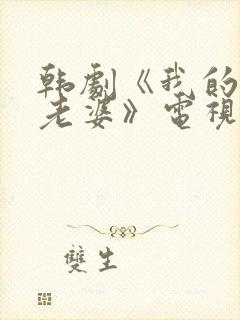 韩劇《我的
老婆》電視
雙生